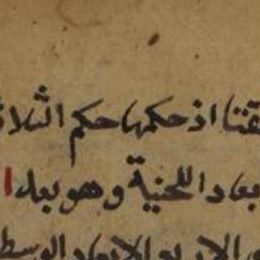 قتا اذ حكمها حكم الثلاث
بعاد اللحنية وهو بعد ا
الاربع الابعاد الوسط